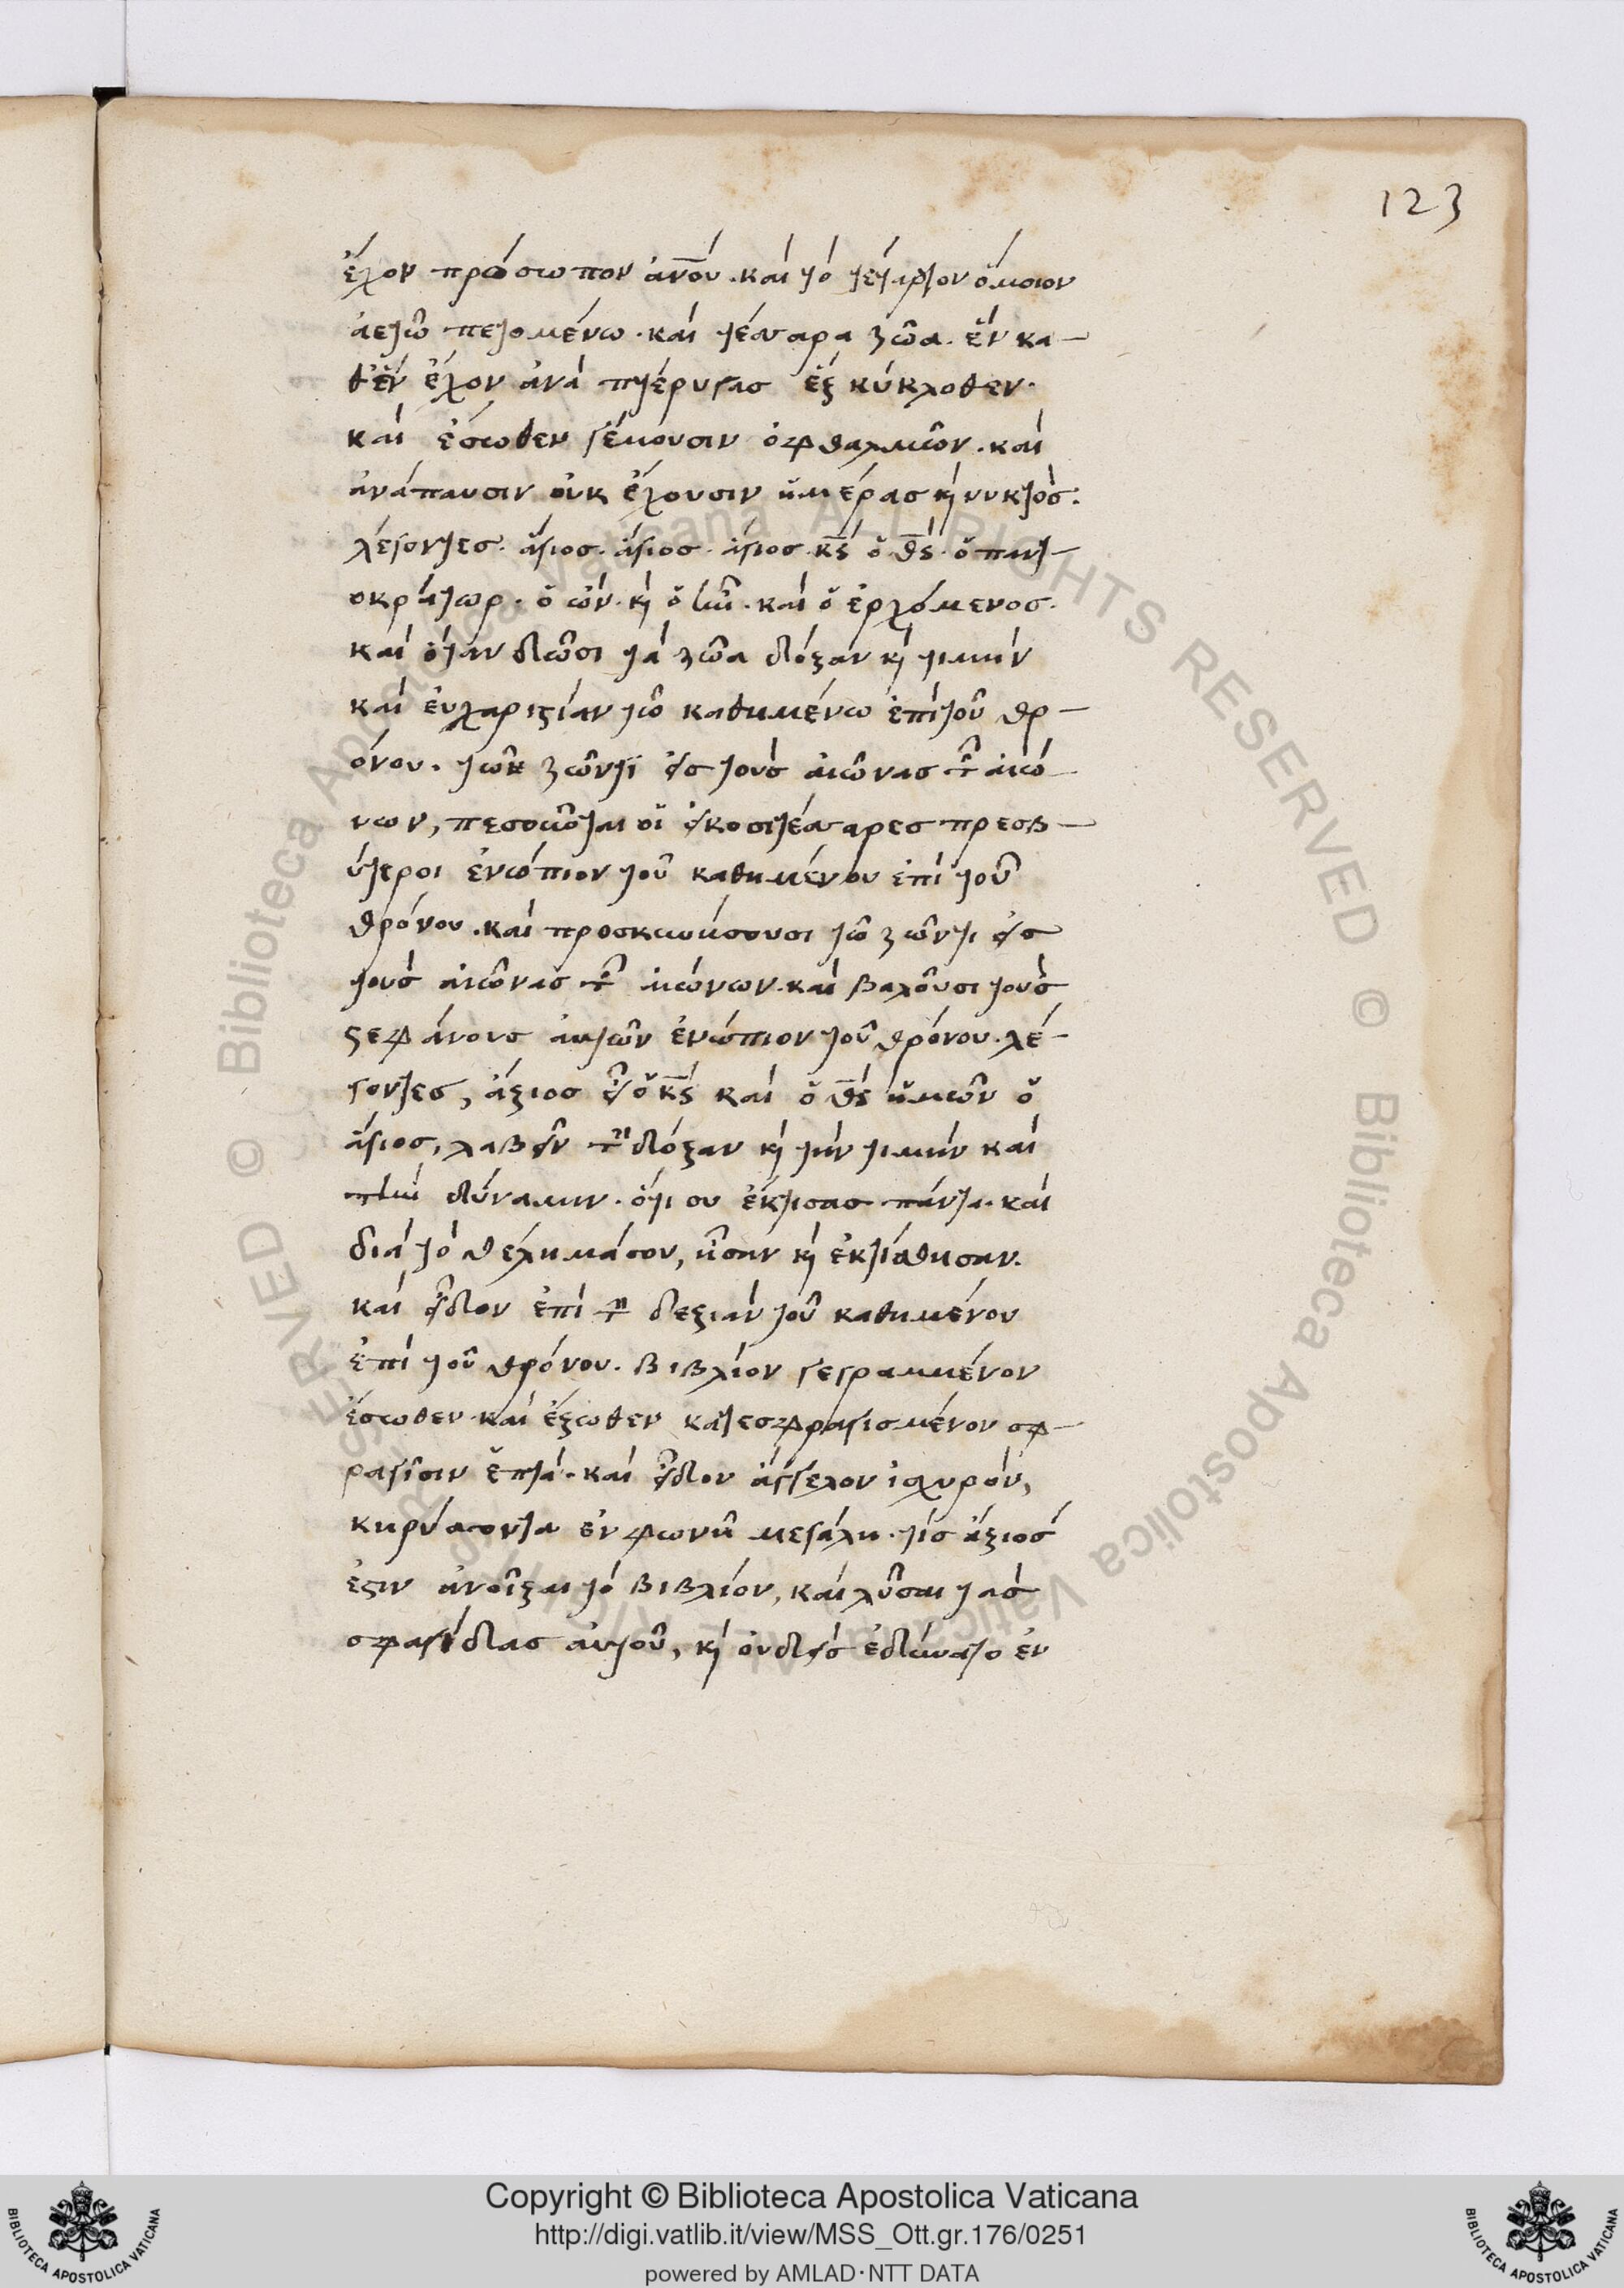 123
ἔχον πρόσωπον ἀν̅ο̅υ̅. καὶ τὸ τέταρτον ὅμοιον
ἀετῶ πετομένω. καὶ τέσσαρα ζῶα. ἓν κα-
θ' ἓν ἔχον ἀνὰ πτέρυγας ἓξ κύκλοθεν.
καὶ ἔσωθεν γέμουσιν ὀφθαλμῶν. καὶ
ἀνάπαυσιν οὐκ ἔχουσιν ἡμέρας κ̀ νυκτός:
λέγοντες. ἅγιος. ἅγιος. ἅγιος. κ̅ς̅ ὁ θ̅ς̅. ὁ παντ-
οκράτωρ. ὁ ὢν. κ̀ ὁ ἦν. καὶ ὁ ἐρχόμενος.
καὶ ὅταν δῶσι τὰ ζῶα δόξαν κ̀ τιμὴν
καὶ εὐχαριϛίαν τῶ καθημένω ἐπὶ τοῦ θρ-
όνου. τῶ ζῶντι εἰς τοὺς αἰῶνας τῶν αἰώ-
νων, πεσοῦνται οἱ εἰκοσιτέσσαρες πρεσβ-
ύτεροι ἐνώπιον τοῦ καθημένου ἐπὶ τοῦ
θρόνου. καὶ προσκυνήσουσι τῶ ζῶντι εἰς
τοὺς αἰῶνας τῶν αἰώνων. καὶ βαλοῦσι τοὺς
ϛεφάνους αὐτῶν ἐνώπιον τοῦ θρόνου. λέ-
γοντες, ἄξιος εἶ ὁ κ̅ς̅ καὶ ὁ θ̅ς̅ ἡμῶν ὁ
ἅγιος, λαβεῖν τὴν δόξαν κ̀ τὴν τιμὴν καὶ
τὴν δύναμιν. ὅτι συ ἔκτισας πάντα. καὶ
διὰ τὸ θέλημάσου, ἦσαν κ̀ ἐκτίσθησαν.
καὶ εἶδον ἐπὶ τὴν δεξιὰν τοῦ καθημένου
ἐπὶ τοῦ θρόνου. βιβλίον γεγραμμένον
ἔσωθεν καὶ ἔξωθεν κατεσφραγισμένον σφ-
ραγῖσιν ἑπτά. καὶ εἶδον ἄγγελον ἰσχυρόν,
κηρύσσοντα ἐν φωνῆ μεγάλη. τίς ἄξιός
ἐϛιν ἀνοῖξαι τὸ βιβλίον, καὶ λῦσαι τὰς
σφαγίδας αὐτοῦ, κ̀ οὐδεὶς ἐδύνατο ἐν
Copyright © Biblioteca Apostolica Vaticana
http://digi.vatlib.it/view/MSS_Ott.gr.176/0251
powered by AMLAD·NTT DATA